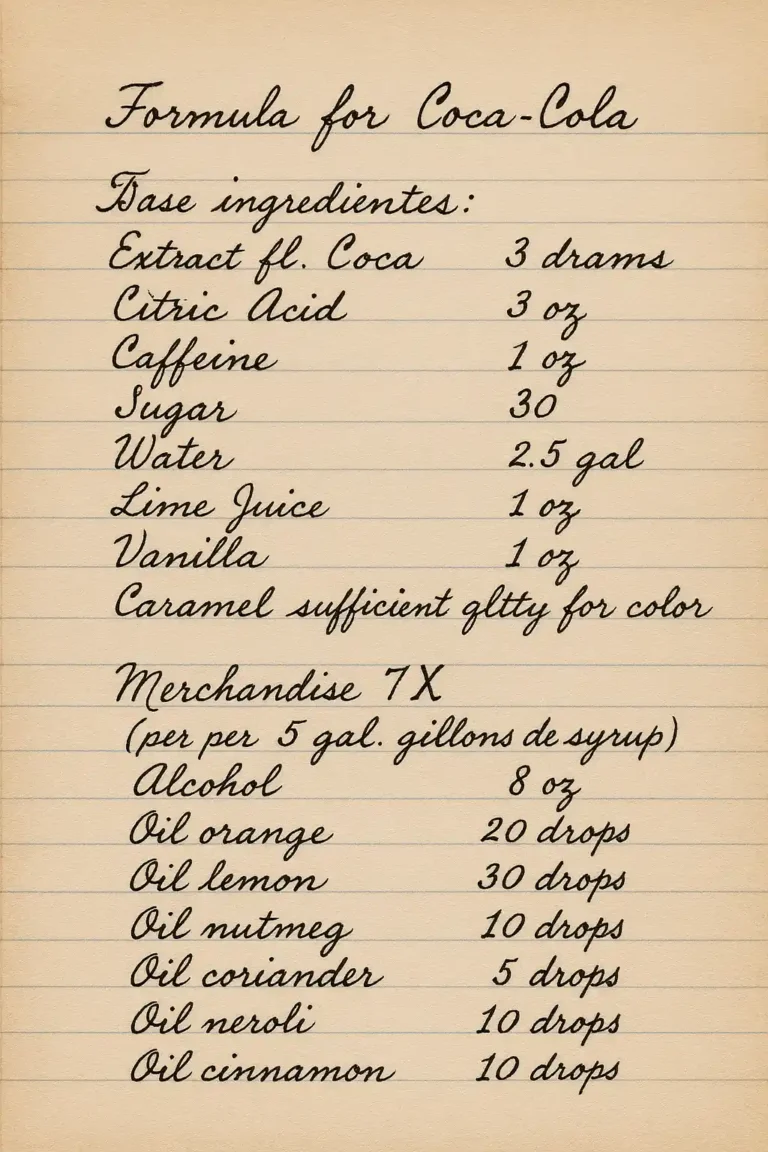 Formula for Coca-Cola
Base ingredientes:
Extract fl. Coca 3 drams
Citric Acid 3 oz
Caffeine 1 oz
Sugar 30
Water 2.5 gal
Lime Juice 1 oz
Vanilla 1 oz
Caramel sufficient qltty for color
Merchandise 7X
(per per 5 gal. gillons de syrup)
Alcohol 8 oz
Oil orange 20 drops
Oil lemon 30 drops
Oil nutmeg 10 drops
Oil coriander 5 drops
Oil neroli 10 drops
Oil cinnamon 10 drops